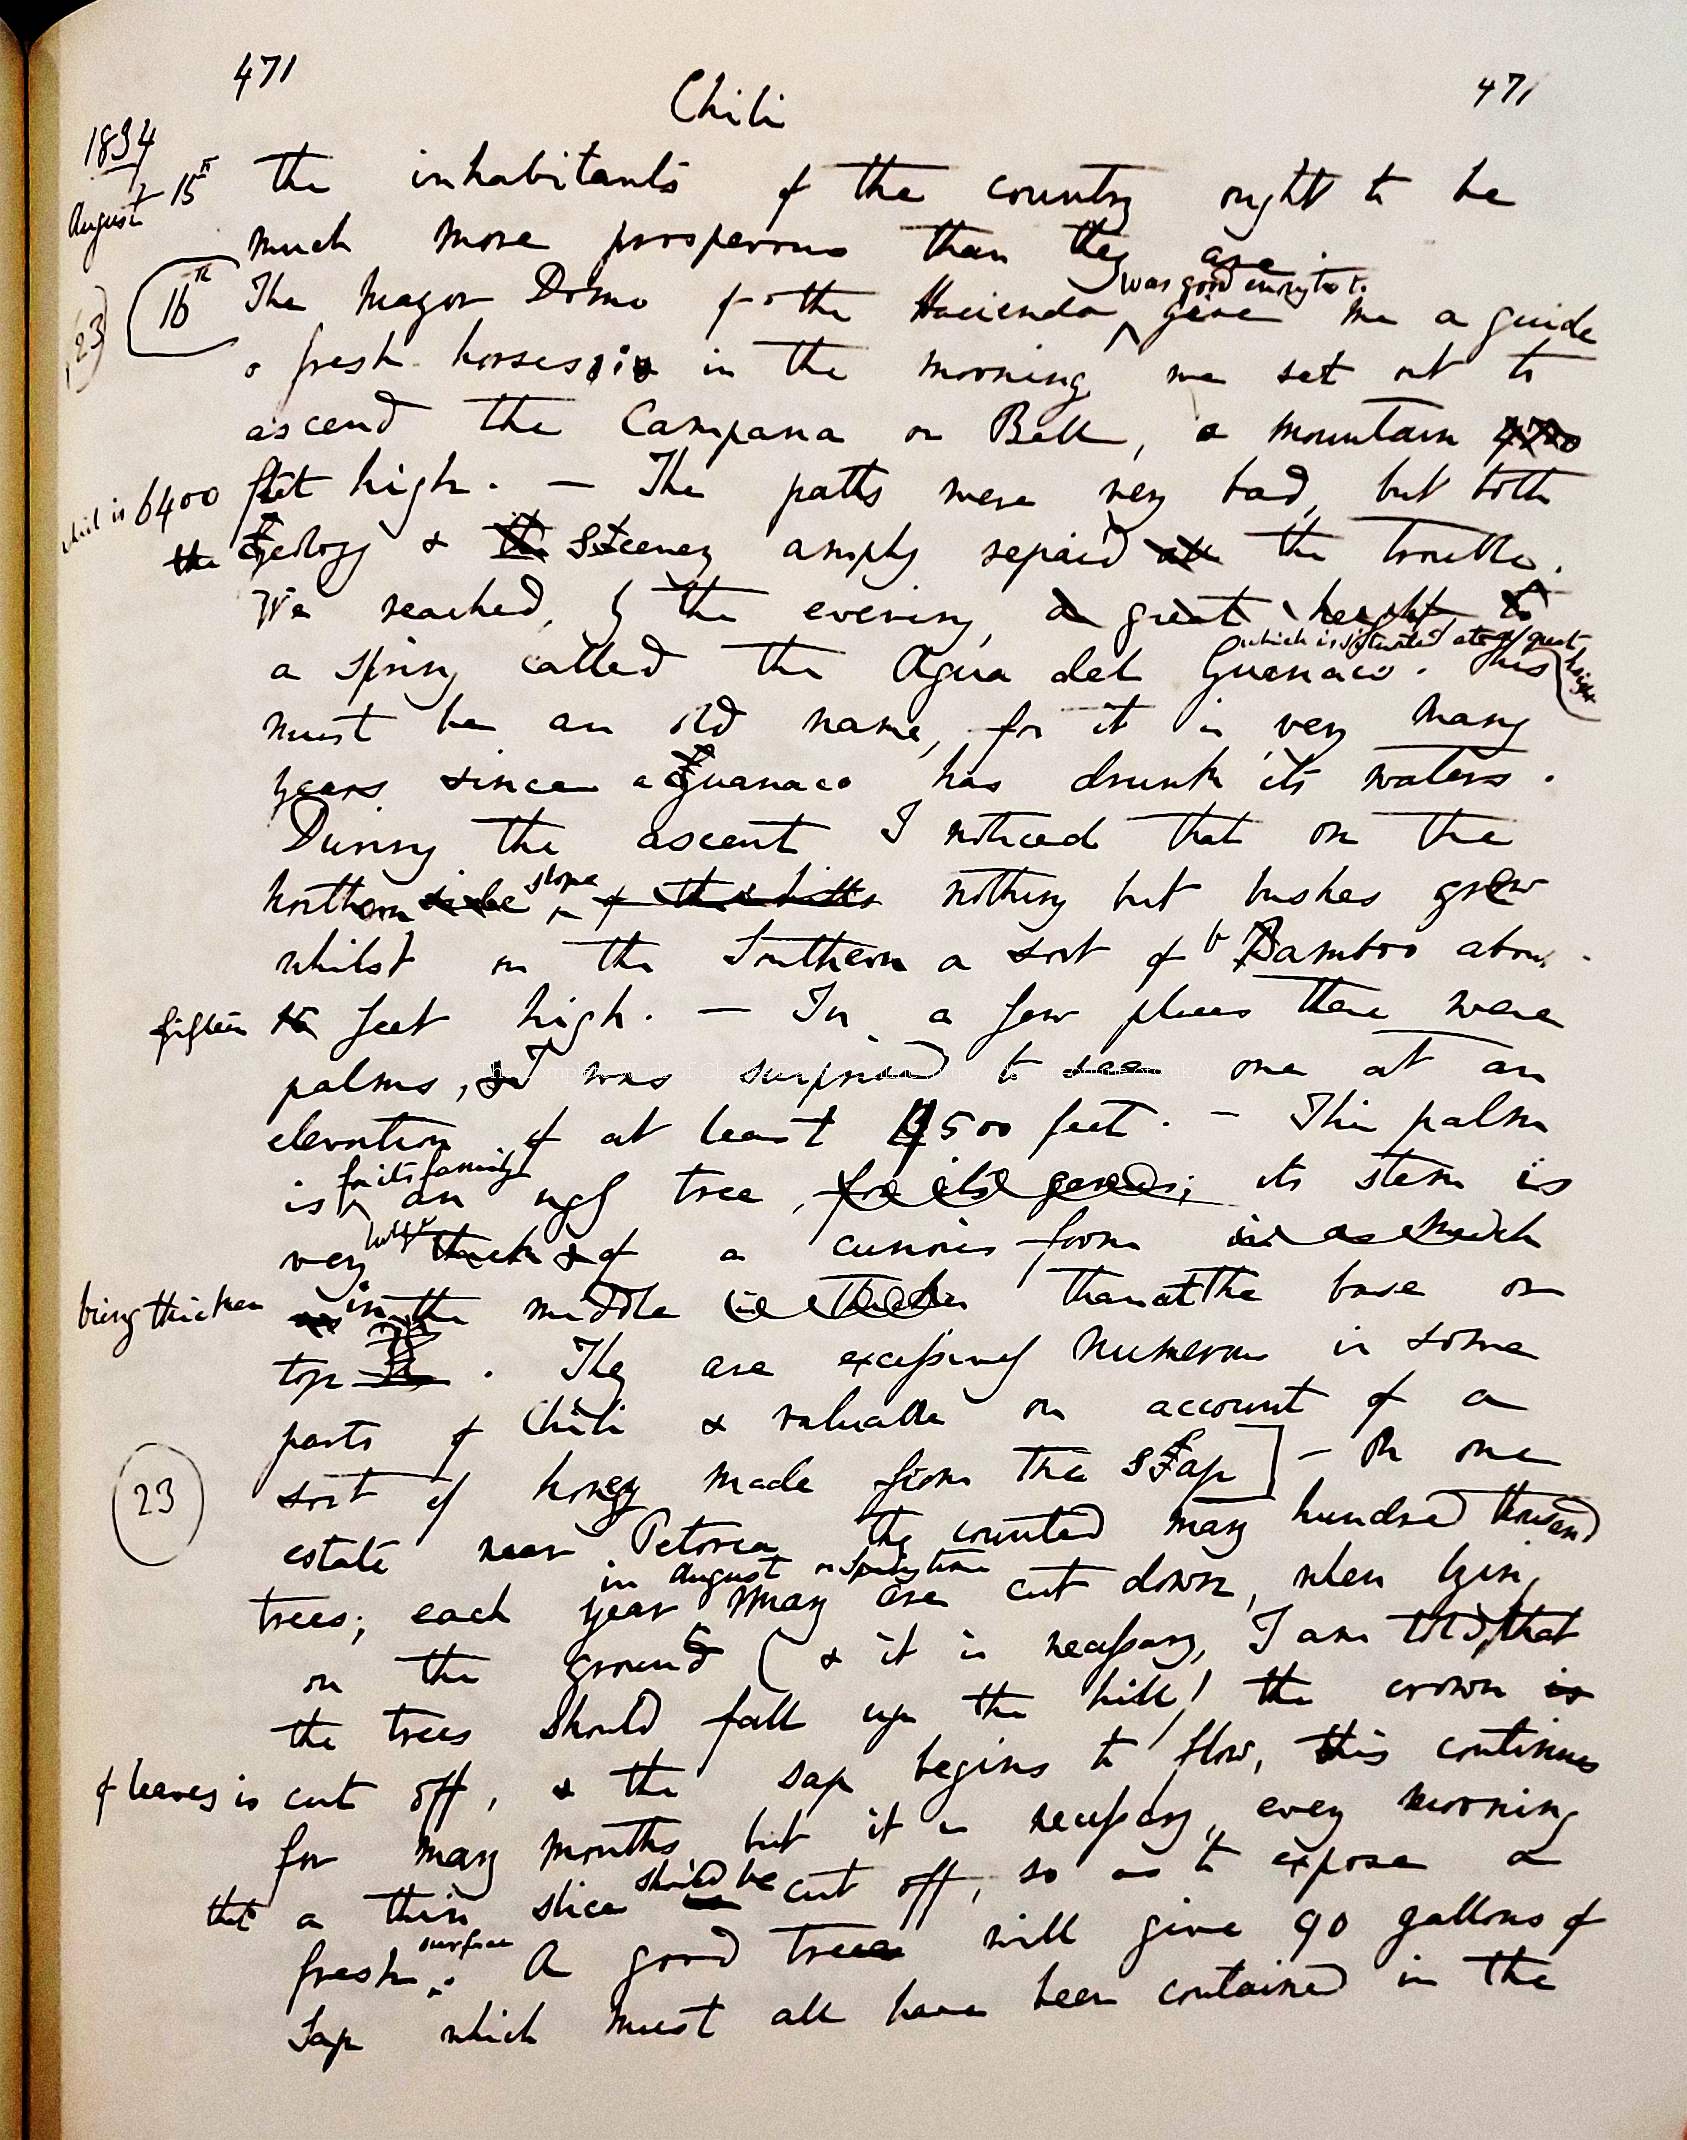 471 Chili 471
1834
August 15th the inhabitants of the country ought to be
much more prosperous than they are.
was good enough to
(23) 16th The Mayor Domo of the Hacienda give me a guide
& fresh horses; in the morning we set out to
ascend the Campana or Bell, a mountain 4700
which is 6400 feet high. — The paths were very bad, but both
the Geology & the Scenery amply repaid all the trouble.
We reached, by the evening, a great height, to
which is situated at a great height
a spring called the Agua del Guanaco. This
must be an old name, for it is very many
years since a Guanaco has drunk its waters.
During the ascent I noticed that on the
slope
northern side of the hills nothing but bushes grew
whilst on the Southern a sort of Bamboo about
fifteen 15 feet high. — In a few places there were
palms, & I was surprised to see one at an
elevation of at least 4500 feet. — This palm
for its family
is an ugly tree, for its genus; its stem is
large
very thick & of a curious form is as much
being thicker in the middle is thicker than at the base or
top. They are excessively numerous in some
parts of Chili & valuable on account of a
sort of honey made from the Sap] — On one
(23)
estate near Petorca they counted many hundred thousand
in August or Spring time
trees; each year many are cut down, when lying
on the ground (& it is necessary, I am told, that
the trees should fall up the hill) the crown is
of leaves is cut off, & the sap begins to flow, this continues
for many months, but it is necessary, every morning
should be
that a thin slice cut off, so as to expose a
surface
fresh. A good tree will give 90 gallons of
Sap which must all have been contained in the